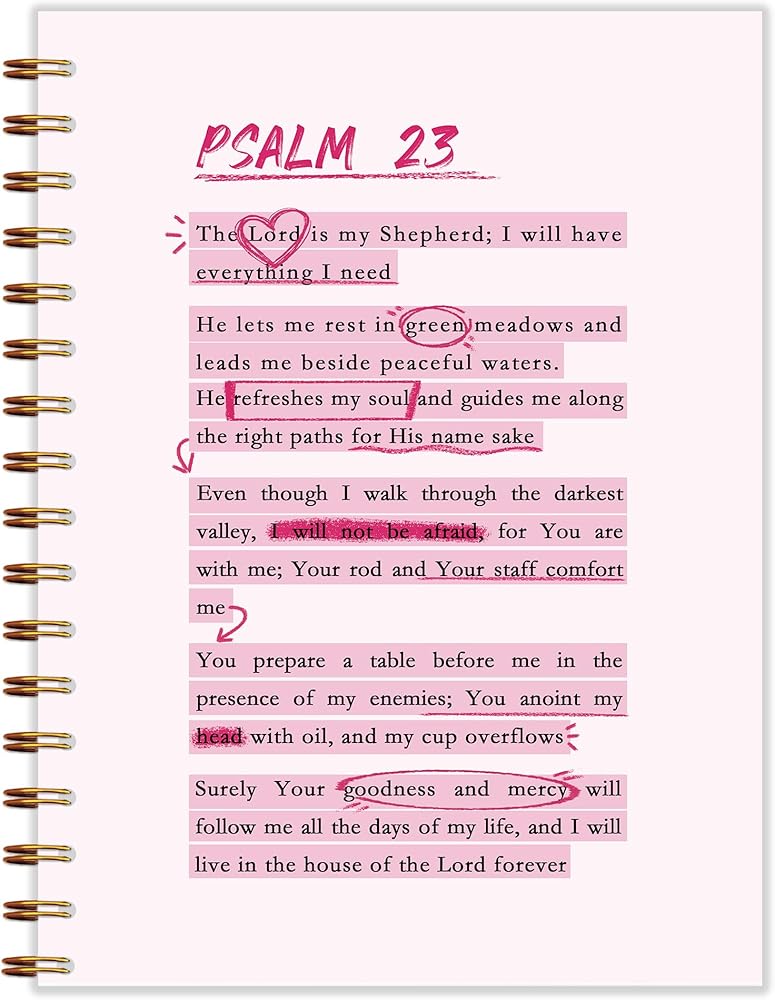 PSALM 23
The Lord is my Shepherd; I will have
everything I need
He lets me rest in green meadows and
leads me beside peaceful waters.
He refreshes my soul and guides me along
the right paths for His name sake
Even though I walk through the darkest
valley, I will not be afraid, for You are
with me; Your rod and Your staff comfort
me
You prepare a table before me in the
presence of my enemies; You anoint my
head with oil, and my cup overflows
Surely Your goodness and mercy will
follow me all the days of my life, and I will
live in the house of the Lord forever